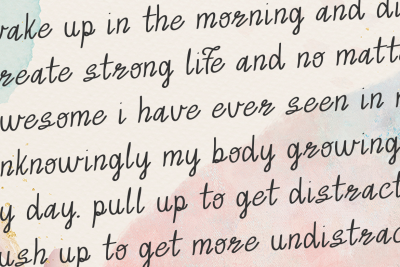 wake up in the morning and di
reate strong life and no matt
wesome i have ever seen in r
nknowingly my body growing
y day. pull up to get distract
ush up to get more undistrac